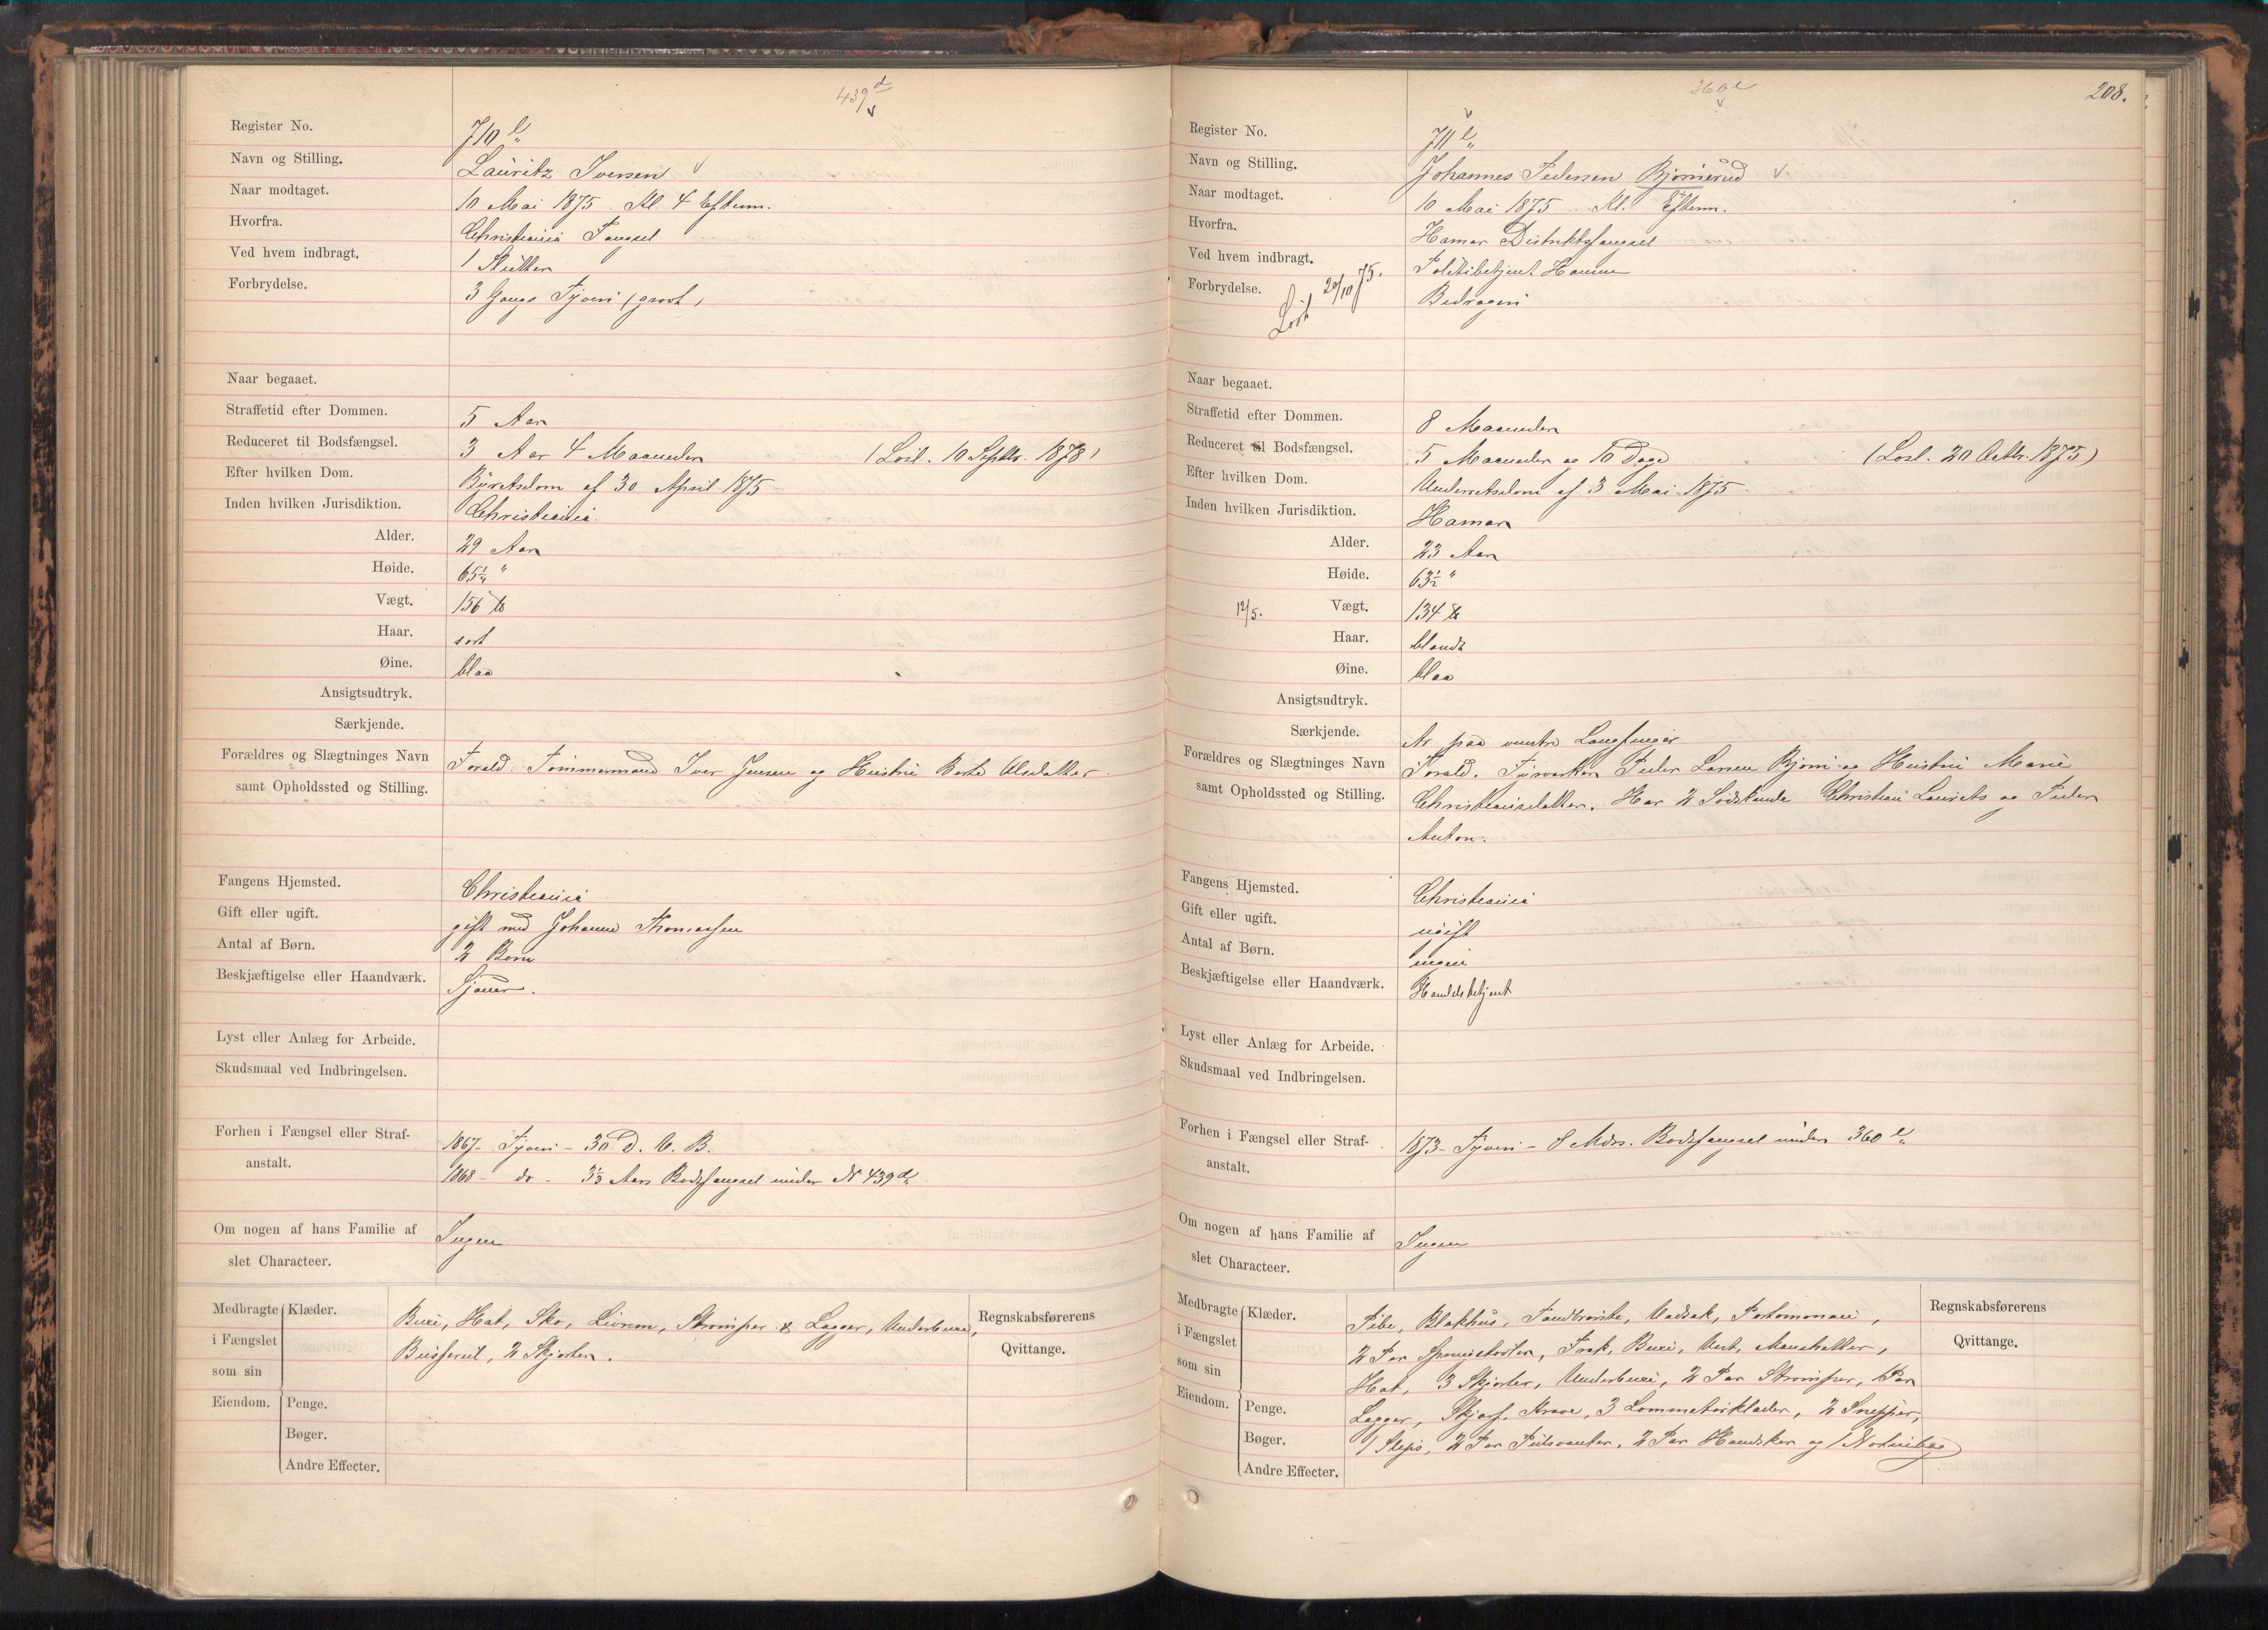 439 d
Register No. 710 e
Navn og Stilling. Lauritz Iversen
Naar modtaget. 10 Mai 1875 Kl 4 Efterm.
Hvorfra. Christiania Fængsel
Ved hvem indbragt. 1 Slutter
Forbrydelse. 3 Gange Tyveri (grovt)
Naar begaaet.
Straffetid efter Dommen. 5 Aar
Reduceret til Bodsfængsel. 3 Aar 4 Maaneder (Løsl. 10 Septbr. 1878)
Efter hvilken Dom. Byretsdom af 30 April 1875
Inden hvilken Jurisdiktion. Christiania.
Alder. 29 Aar
Høide. 65¼ "
Vægt. 156 ℔
Haar. sort
Øine. blaa
Ansigtsudtryk.
Særkjende.
Forældres og Slægtninges Navn Foræld. Tømmermand Iver Jensen og Hustru Berte Olsdatter.
samt Opholdssted og Stilling.
Fangens Hjemsted. Christiania
Gift eller ugift. gift med Johanne Thomassen
Antal af Børn. 2 Børn
Beskjæftigelse eller Haandværk. Sjauer.
Lyst eller Anlæg for Arbeide.
Skudsmaal ved Indbringelsen.
Forhen i Fængsel eller Straf- 1867 - Tyveri - 30 D. V. B.
anstalt. 1868 - do - 3⅓ Aars Bodsfængsel under N 439 d
Om nogen af hans Familie af Ingen
slet Characteer.
Medbragte Klæder. Buxe, Hat, Sko, Livrem, Strømper & Lægger, Underbuxe,
i Fængslet Busserul, 2 Skjorter.
som sin
Eiendom. Penge.
Bøger.
Andre Effecter.
Regnskabsførerens
Qvittange.
360 e
208.
Register No. 711 e
Navn og Stilling. Johannes Pedersen Bjørnerud
Naar modtaget. 10 Mai 1875 Kl. Efterm.
Hvorfra. Hamar Distriktsfængsel
Ved hvem indbragt. Politibetjent
Forbrydelse. Løst 20/10 75. Bedrageri
Naar begaaet.
Straffetid efter Dommen. 8 Maaneder
Reduceret til Bodsfængsel. 5 Maaneder og 10 Dage (Løsl. 20 Octbr. 1875)
Efter hvilken Dom. Underretsdom af 3 Mai 1875
Inden hvilken Jurisdiktion. Hamar
Alder. 23 Aar
Høide. 63½ "
12/5. Vægt. 134 ℔
Haar. blondt
Øine. blaa
Ansigtsudtryk.
Særkjende. Ar paa venstre Langfinger
Forældres og Slægtninges Navn Foræld. Peder Larsen og Hustru Marie
samt Opholdssted og Stilling. Christiansdatter. Har 2 Sødskende Christian Laurits og Peder
Anton.
Fangens Hjemsted. Christiania
Gift eller ugift. ugift
Antal af Børn. ingen
Beskjæftigelse eller Haandværk. Handelsbetjent
Lyst eller Anlæg for Arbeide.
Skudsmaal ved Indbringelsen.
Forhen i Fængsel eller Straf- 1873 - Tyveri - 8 Mdrs. Bodsfængsel under 360 e
anstalt.
Om nogen af hans Familie af Ingen
slet Characteer.
Medbragte Klæder. Pibe, Blækhus, Tandbørste, Vadsæk, Portemonæi,
i Fængslet 2 Par Springstøvler, Frak, Buxe, Vest, Manchetter,
som sin Hat, 3 Skjorter, Underbuxe, 2 Par Strømper, 1 Par
Eiendom. Penge. Lægger, Skjærf, Krave, 3 Lommetørklæder, 2 Snipper,
Bøger. 1 Slips, 2 Par Pulsvanter, 2 Par Handsker og 1
Andre Effecter.
Regnskabsførerens
Qvittange.